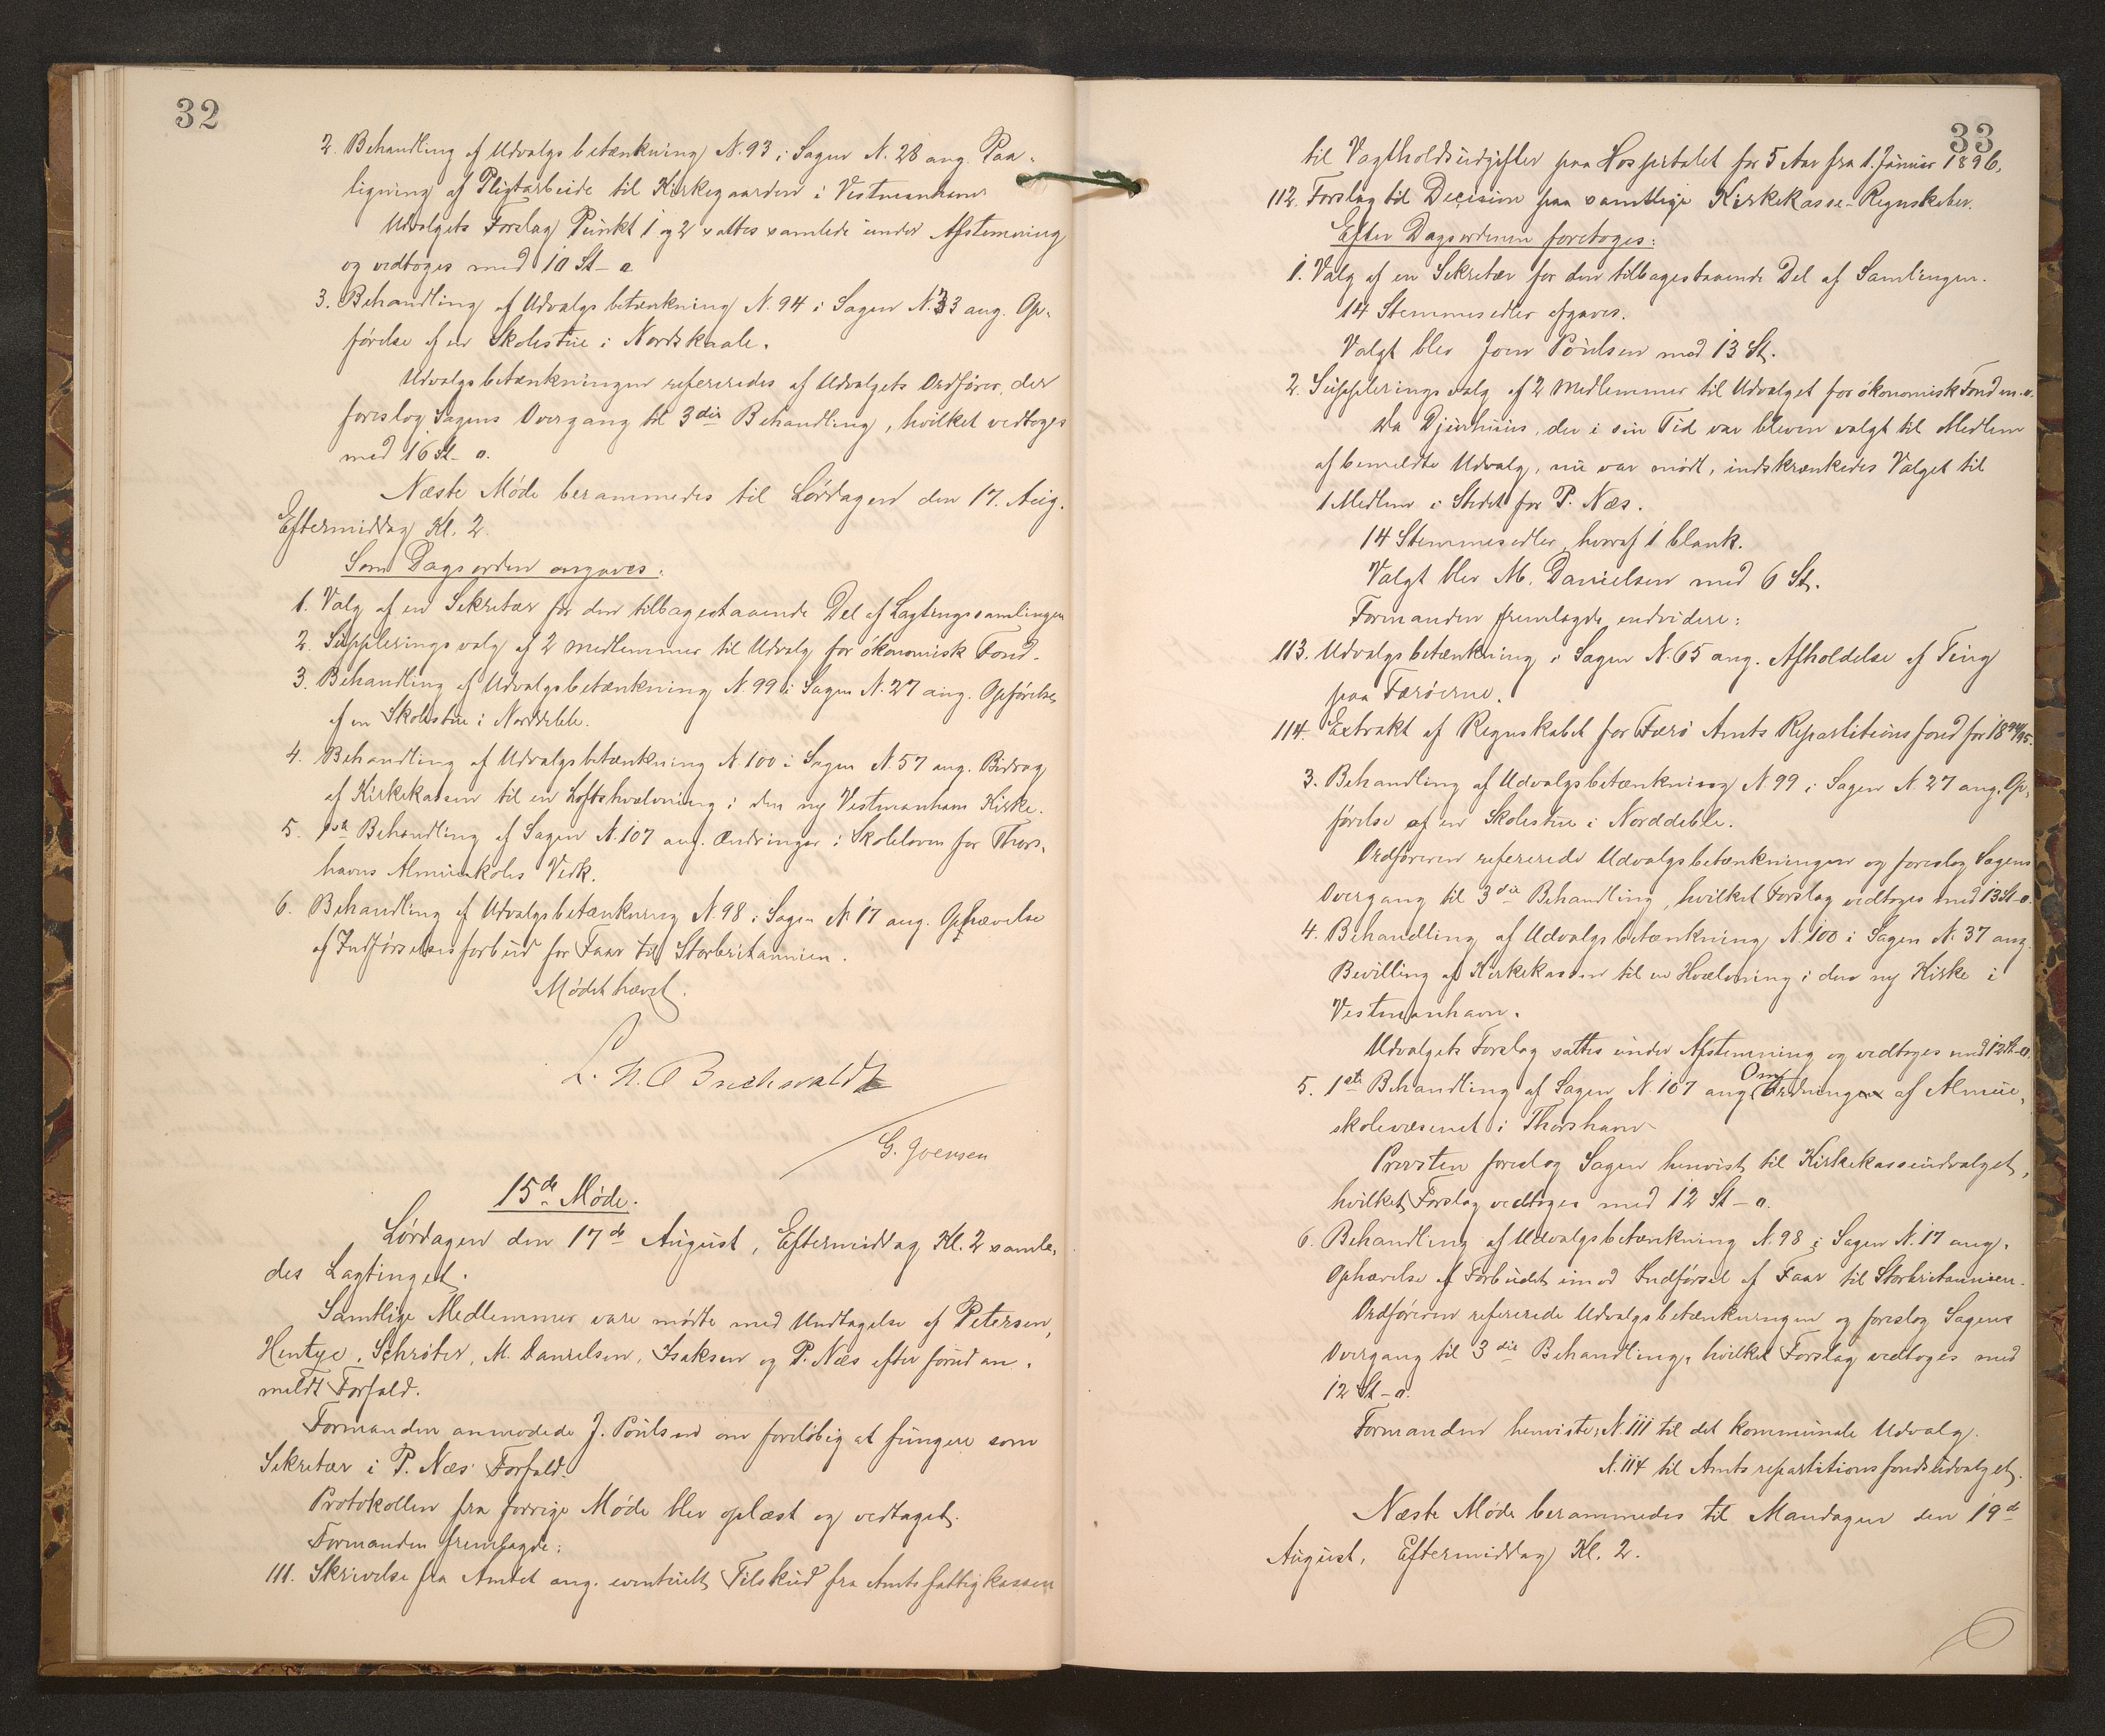 32
2. Behandling af Udvalgsbetænkning N. 93 i Sagen N. 28 ang. Paa-
ligning af Pligtarbeide til Kirkegaarden i Vestmanhavn
Udvalgets Forslag Punkt 1 og 2 sattes samlede under Afstemning
og vedtoges med 10 St - 0
3. Behandling af Udvalgsbetænkning N. 94 i Sagen N. 33 ang. Op-
førelse af en Skolestue i Nordskaale.
Udvalgsbetænkningen refereredes af Udvalgets Ordfører, der
foreslog Sagens Overgang til 3die Behandling, hvilket vedtoges
med 16 St - 0.
Næste Møde berammedes til Lørdagen den 17. Aug.
Eftermiddag Kl. 2.
Som Dagsorden angaves:
1. Valg af en Sekretær for den tilbagestaaende Del af Lagtingssamlingen
2. Suppleringsvalg af 2 Medlemmer til Udvalg for økonomisk Fond.
3. Behandling af Udvalgsbetænkning N. 99 i Sagen N. 27 ang. Opførelse
af en Skolestue i Norddeble.
4. Behandling af Udvalgsbetænkning N. 100 i Sagen N. 57 ang. Bidrag
af Kirkekassen til en Loftshvælvning i den ny Vestmanhavn Kirke.
5. 1ste Behandling af Sagen N. 107 ang. Ændringer i Skoleloven for Thors-
havns Almueskoles Vedk.
6. Behandling af Udvalgsbetænkning N. 98 i Sagen N. 17 ang. Ophævelse
af Indførselsforbud for Faar til Storbritannien.
Mødet hævet.
L. N. C Buchwaldt
G. Joensen
15de Møde.
Lørdagen den 17de August, Eftermiddag Kl. 2 samle-
des Lagtinget.
Samtlige Medlemmer vare mødte med Undtagelse af Petersen,
Hentze, Schrøter, M. Danielsen, Isaksen og P. Næs efter forud an-
meldt Forfald.
Formanden anmodede J. Poulsen om foreløbig at fungere som
Sekretær i P. Næs' Forfald.
Protokollen fra forrige Møde blev oplæst og vedtaget.
Formanden fremlagde:
111. Skrivelse fra Amtet ang. eventuelt Tilskud fra Amtsfattigkassen
33
til Vagtholdsudgifter paa Hospitalet for 5 Aar fra 1. Januar 1896.
112. Forslag til Decision paa samtlige Kirkekasse-Regnskaber.
Efter Dagsordenen foretoges:
1. Valg af en Sekretær for den tilbagestaaende Del af Samlingen.
14 Stemmesedler afgaves.
Valgt blev Joen Poulsen med 13 St.
2. Suppleringsvalg af 2 Medlemmer til Udvalget for økonomisk Fond m.v.
Da Djurhuus, der i sin Tid var bleven valgt til Medlem
af bemeldte Udvalg, nu var mødt, indskrænkedes Valget til
1 Medlem i Stedet for P. Næs.
14 Stemmesedler, hvoraf 1 blank.
Valgt blev M. Danielsen med 6 St.
Formanden fremlagde endvidere:
113. Udvalgsbetænkning i Sagen N. 65 ang. Afholdelse af Ting
paa Færøerne.
114. Extrakt af Regnskabet for Færø Amts Repartitionsfond for 1894/95.
3. Behandling af Udvalgsbetænkning N. 99 i Sagen N. 27 ang. Op-
førelse af en Skolestue i Norddeble.
Ordføreren refererede Udvalgsbetænkningen og foreslog Sagens
Overgang til 3die Behandling, hvilket Forslag vedtoges med 13 St - 0.
4. Behandling af Udvalgsbetænkning N. 100 i Sagen N. 37 ang.
Bevilling af Kirkekassen til en Hvælvning i den ny Kirke i
Vestmanhavn.
Udvalgets Forslag sattes under Afstemning og vedtoges med 12 St - 0.
5. 1ste Behandling af Sagen N. 107 ang. Omordning af Almue-
skolevæsenet i Thorshavn
Provsten foreslog Sagen henvist til Kirkekasseudvalget,
hvilket Forslag vedtoges med 12 St - 0.
6. Behandling af Udvalgsbetænkning N. 98 i Sagen N. 17 ang.
Ophævelse af Forbudet imod Indførsel af Faar til Storbritannien.
Ordføreren refererede Udvalgsbetænkningen og foreslog Sagens
Overgang til 3die Behandling, hvilket Forslag vedtoges med
12 St - 0.
Formanden henviste: N. 111 til det kommunale Udvalg.
N. 114 til Amtsrepartitionsfondsudvalget.
Næste Møde berammedes til Mandagen den 19de
August, Eftermiddag Kl. 2.